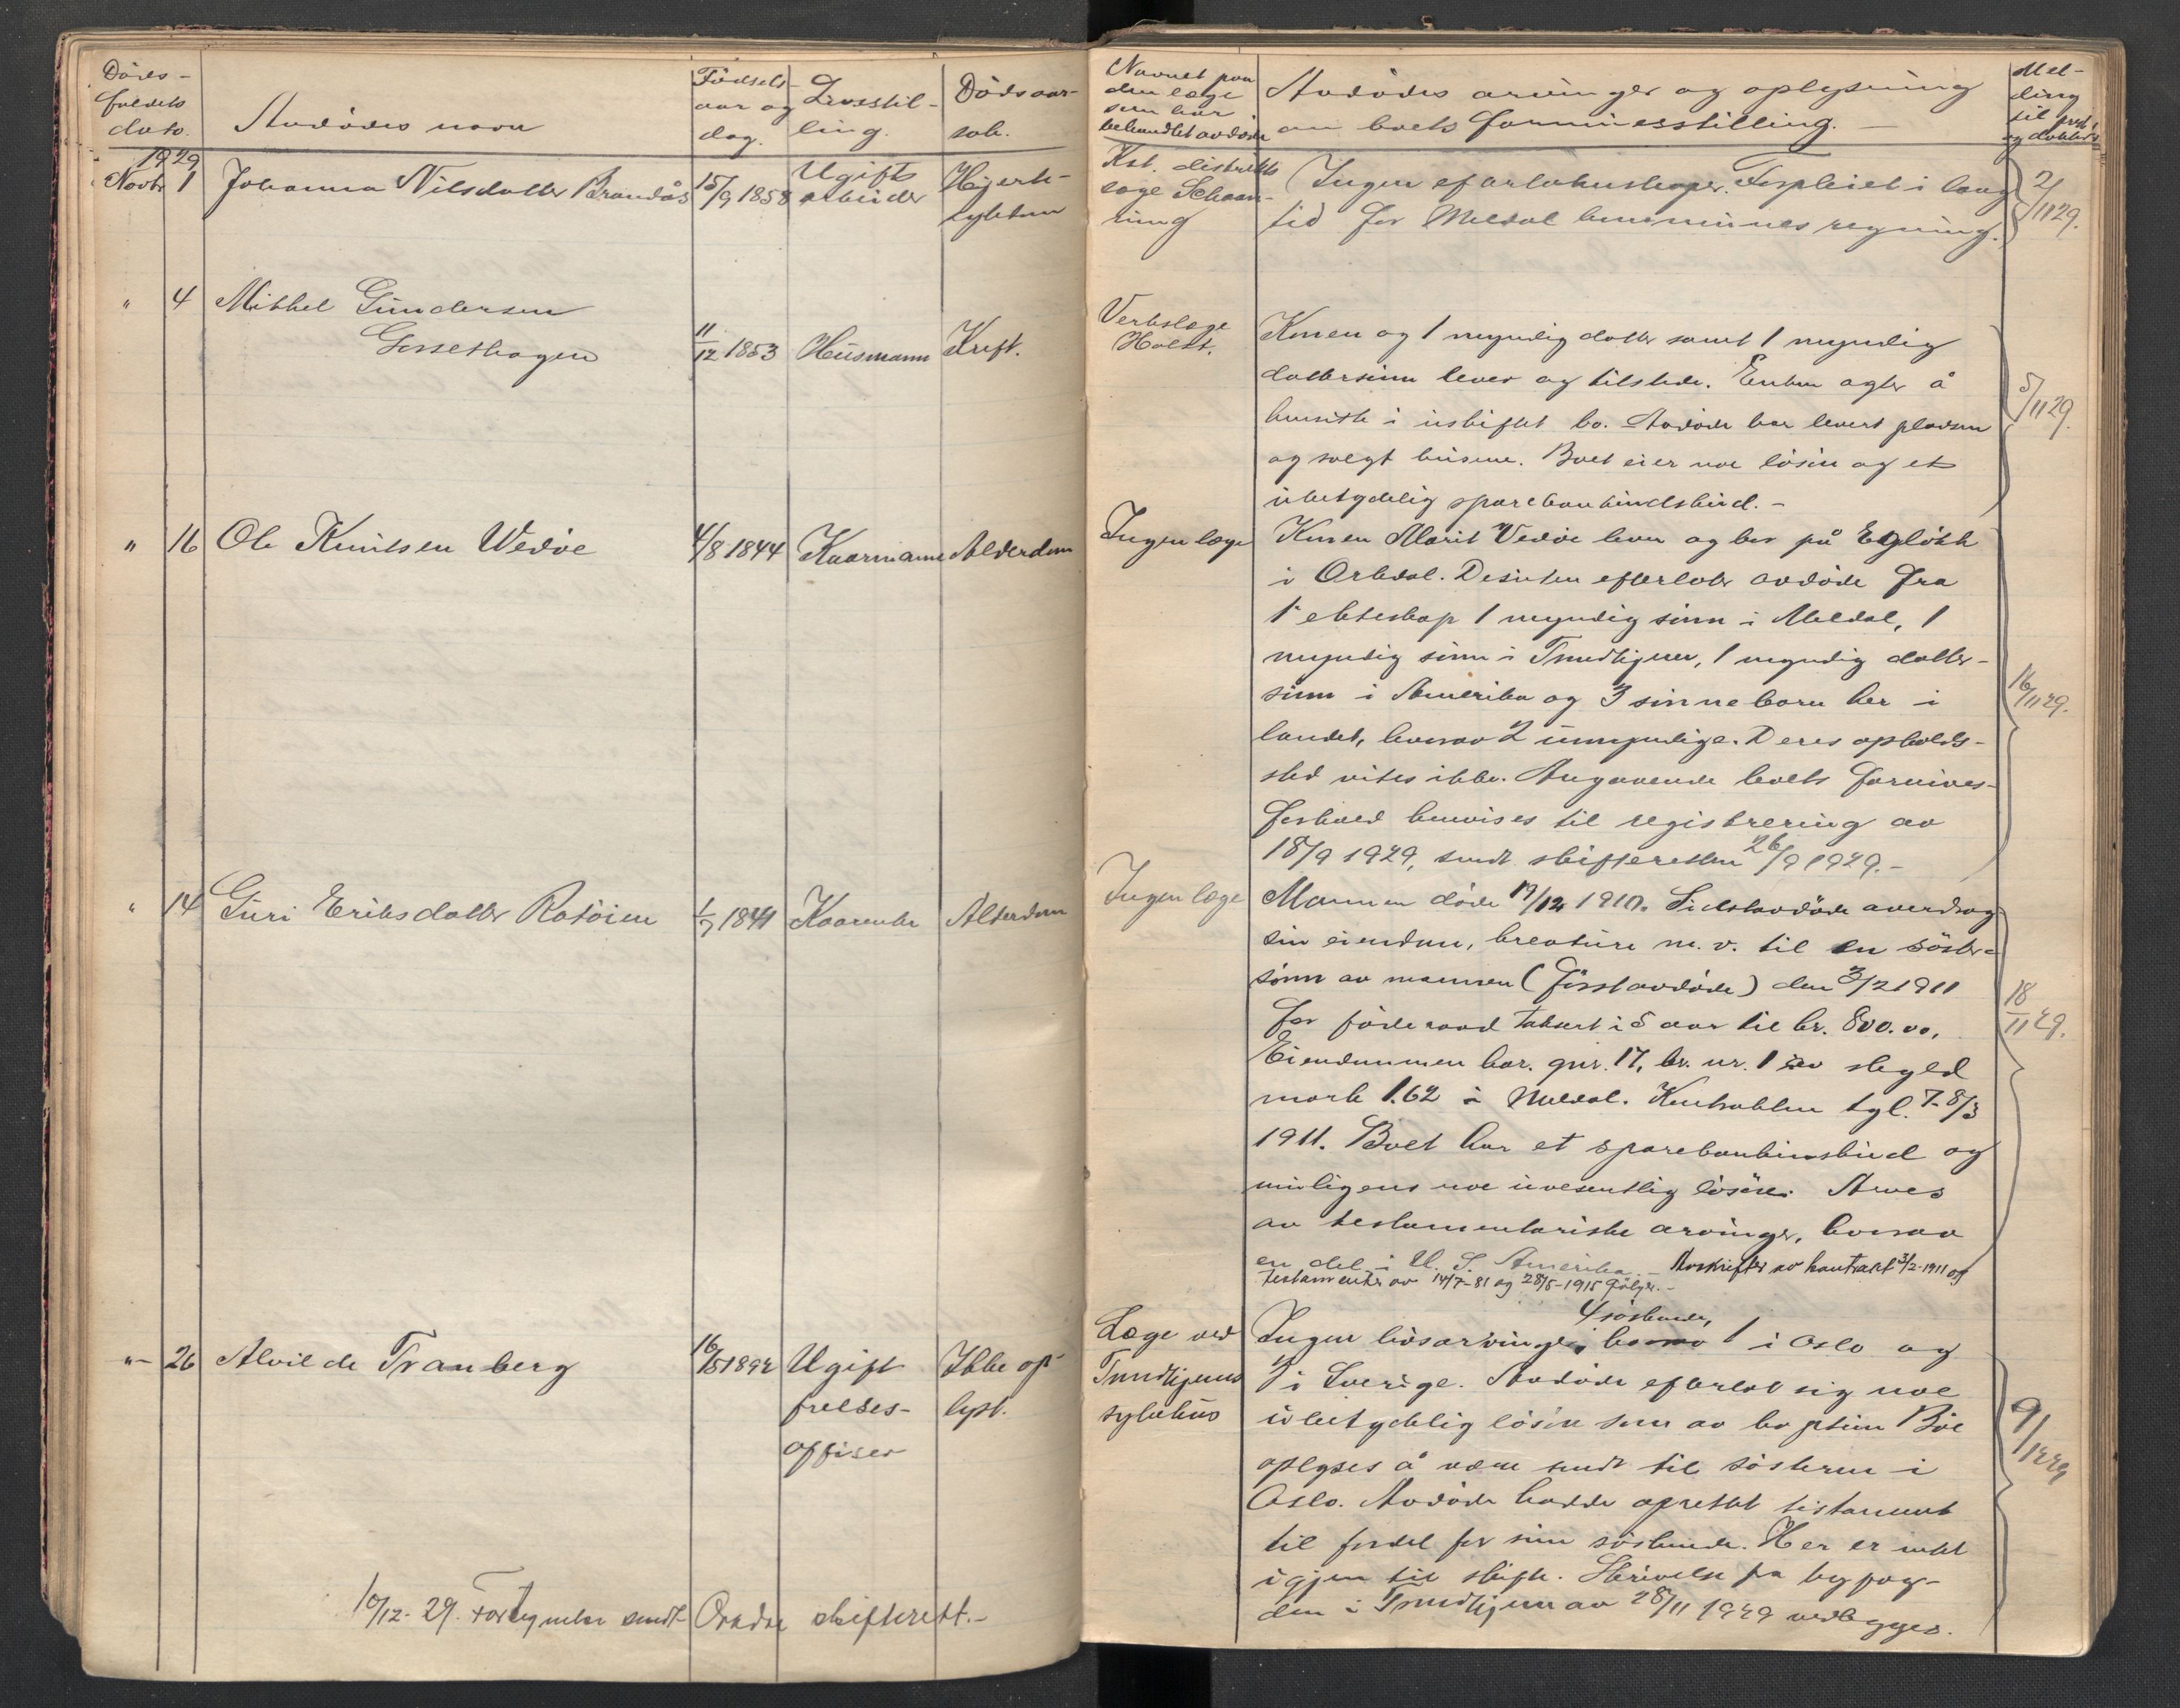 Döds-
faldets
dato.
Avdödes navn
Födsels-
aar og
dag.
Livsstil-
ling.
Dödsaar-
sak.
Navnet paa
den læge
som har
behandlet avdöde
Avdödes arvinger og oplysning
om boets formuesstilling. -
Mel-
ding
til
1929
Novbr 1
Johanna Nilsdatter Brandås
15/9 1858
Ugift
arbeider
Hjerte-
sykdom
Kst. distrikts
læge Schaan-
ning
Ingen efterlatenskaper. Forpleiet i lang
tid for Meldal kommunes regning.
2/11 29.
" 4
Mikkel Gundersen
11/12 1853
Husmann
Kreft.
Verkslæge
Holst.
Konen og 1 myndig datter samt 1 myndig
dattersønn lever og tilstede. Enken agter å
hensitte i uskiftet bo. Avdöde har levert pladsen
og solgt husene. Boet eier noe lösöre og et
ubetydelig sparebankinnskud. -
5/11 29.
" 16
Ole Knutsen Wedöe
4/8 1844
Kaarmann
Alderdom
Ingen læge
Konen Marit Vedöe lever og bor på Eglökk
i Orkdal. Desuten efterlater avdöde fra
1. ekteskap 1 myndig sönn i Meldal, 1
myndig sönn i Trondhjem, 1 myndig datter-
sönn i Amerika og 3 sønnebarn her i
landet, hvorav 2 umyndige. Deres opholds-
sted vites ikke. Angaaende boets formues-
forhold henvises til registrering av
18/9 1929, sendt skifteretten 26/9 1929. -
16/11 29.
" 14
Guri Eriksdatter Rotöien
1/7 1841
Kaarenke
Alderdom
Ingen læge
Mannen döde 19/12 1910. Sidstavdöde overdrog
sin eiendom, kreature m.v. til en söster-
sönn av mannen (förstavdöde) den 3/2 1911
for föderaad taksert i 5 aar til kr. 800.00.
Eiendommen har gnr. 17, br. nr. 1 av skyld
mark 1.62 i Meldal. Kontrakten tgl. 7-8/3
1911. Boet har et sparebankinnskud og
muligens noe uvesentlig lösöre. Arves
av testamentariske arvinger, hvorav
en del i U. S. Amerika. - Avskrifter av kontrakt 3/2-1911 og
testamenter av 14/7-81 og 28/5-1915 følger. -
18/11 29.
"- 26
Alvilde Tranberg
16/5 1892
Ugift
frelses-
offiser
Ikke op-
lyst.
Læge ved
Trondhjems
sykehus
4 söskende,
Ingen livsarvinger, hvorav 1 i Oslo og
3 i Sverige. Avdöde efterlot sig noe
ubetydelig lösöre som av kaptein Böe
oplyses å være sendt til sösteren i
Oslo. Avdöde hadde oprettet testament
til fordel for sine söskende. Her er intet
igjen til skifte. Skrivelse fra byfog-
den i Trondhjem av 28/11 1929 vedlegges.
9/12 29
10/12-29. Fortegnelse sendt Orkdal skifterett. -